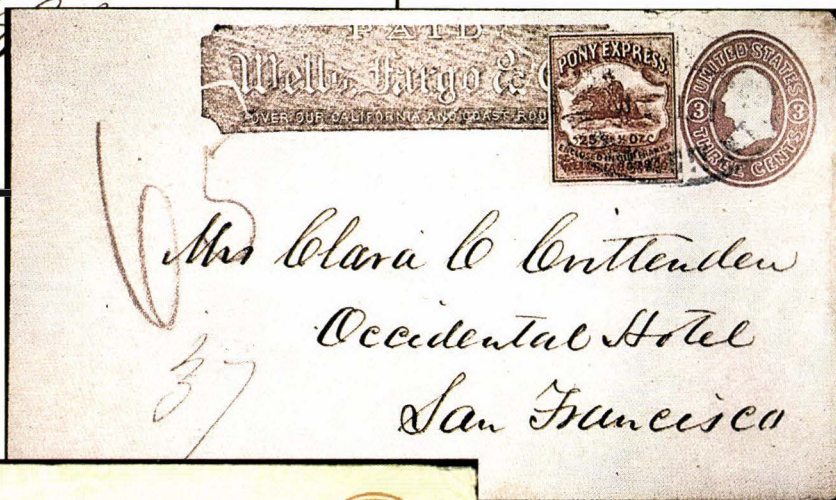 PAID
Wells, Fargo & C
OVER OUR CALIFORNIA AND COAST ROU
PONY EXPRESS.
25 ¢s ½ OZ
ENCLOSED IN OUR FRANKS
UNITED STATES
3 3
THREE CENTS
65
37
Mrs Clara C Crittenden
Occidental Hotel
San Francisco